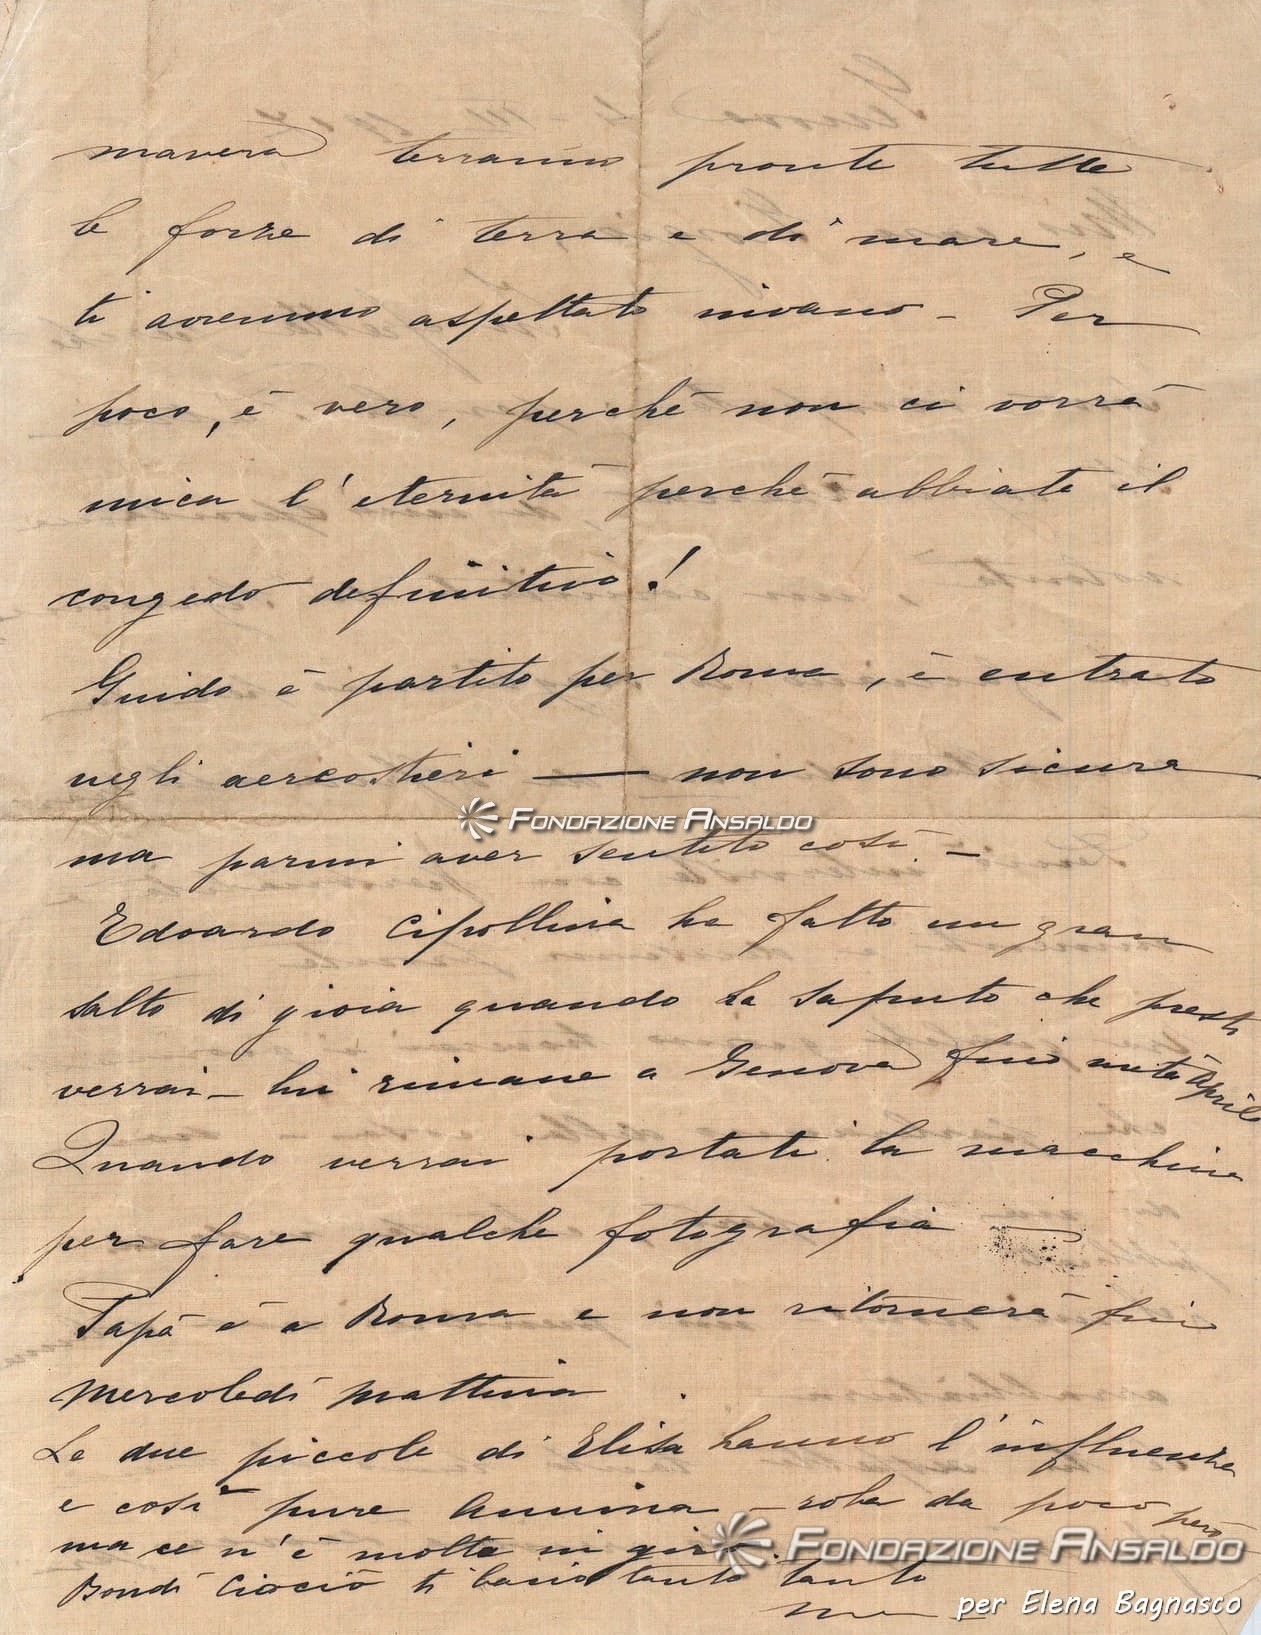 mavera terranno pronte tutte
le forze di terra e di mare, e
ti avremmo aspettato invano - Per
poco, è vero, perchè non ci vorrà
mica l'eternità perchè abbiate il
congedo definitivo!
Guido è partito per Roma, è entrato
negli aereostieri — non sono sicura
FONDAZIONE ANSALDO
ma parmi aver sentito così -
Edoardo Cipollina ha fatto un gran
salto di gioia quando ha saputo che presto
verrai - lui rimane a Genova fino metà Aprile
Quando verrai portati la macchina
per fare qualche fotografia
Papà è a Roma e non ritornerà fino
Mercoledì mattina
Le due piccole di Elisa hanno l'influenza
e così pure Annina - roba da poco però
ma ce n'è molta in giro.
FONDAZIONE ANSALDO
Bondì ciociò ti bacio tanto tanto
per Elena Bagnasco